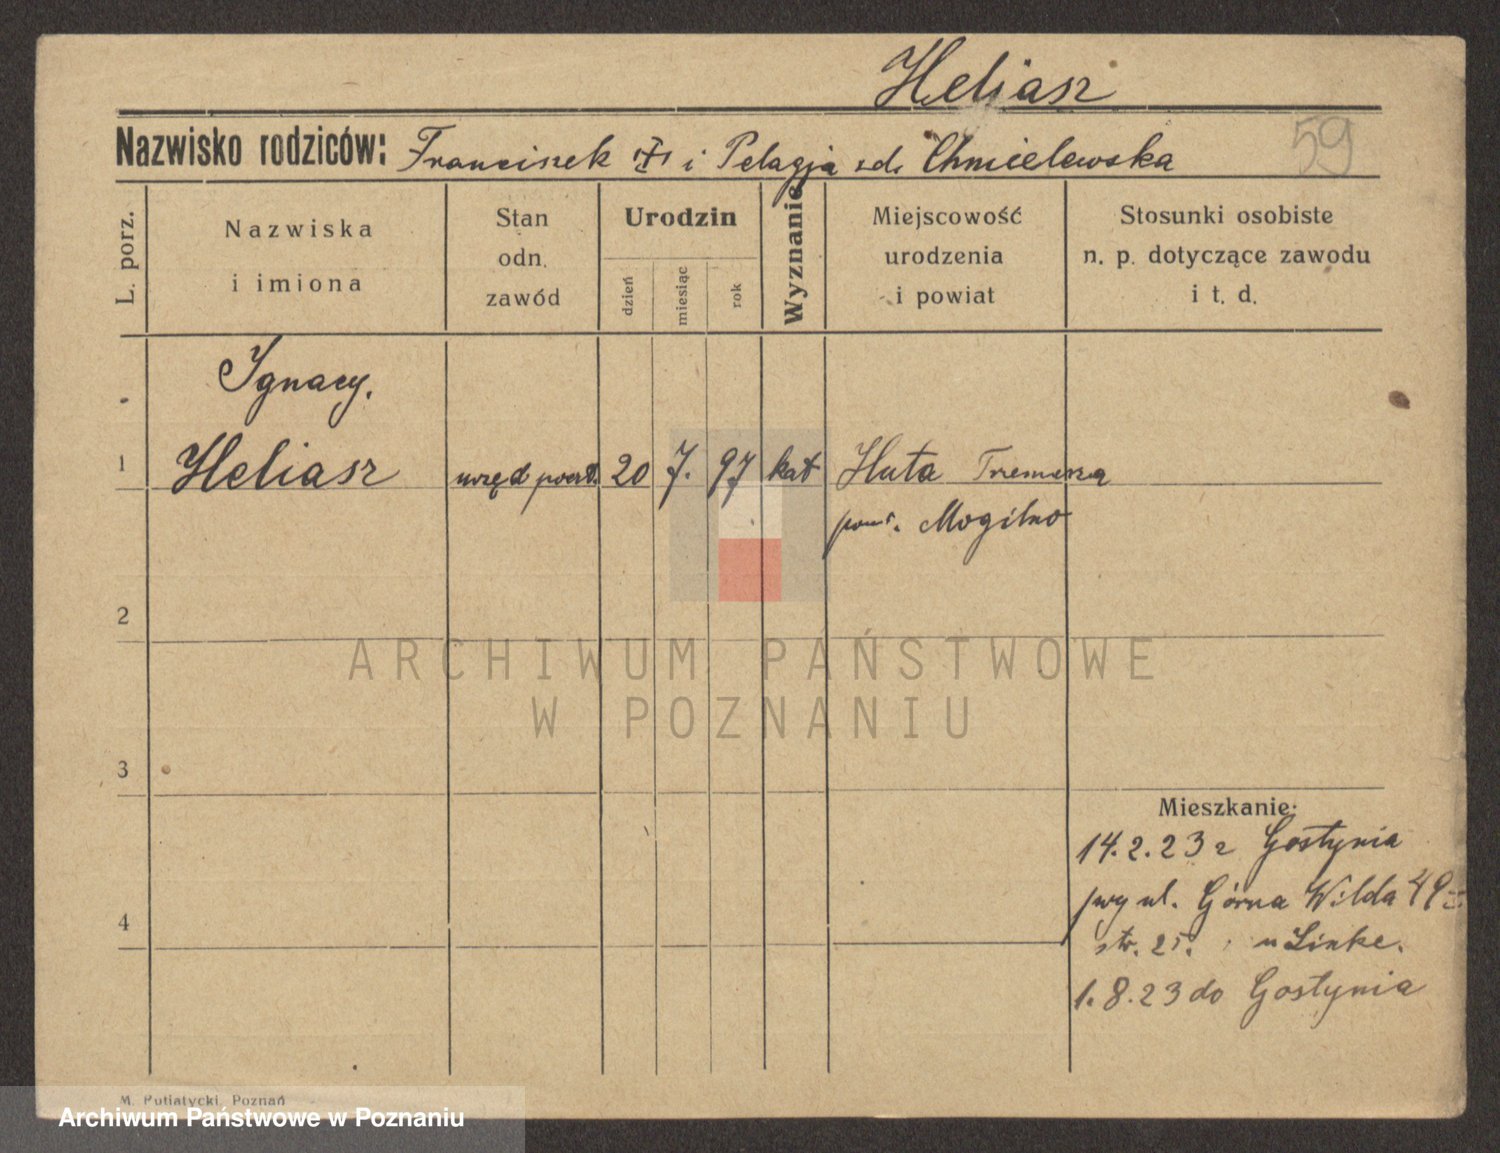 Heliasz
59
Nazwisko rodziców: Franciszek i Pelagja zd. Chmielewska
L. porz.
Nazwiska
i imiona
Stan
odn.
zawód
Urodzin
dzień
miesiąc
rok
Wyznanie
Miejscowość
urodzenia
i powiat
Stosunki osobiste
n. p. dotyczące zawodu
i t. d.
Ignacy.
1 Heliasz urzęd poczt. 20 7. 97 kat Huta Trzemesza
pow. Mogilno
2
ARCHIWUM PAŃSTWOWE
W POZNANIU
3
Mieszkanie:
14.2.23 z Gostynia
ul. Górna Wilda 49
4
str. 25. u Linke.
1.8.23 do Gostynia
M. Putiatycki, Poznań
Archiwum Państwowe w Poznaniu